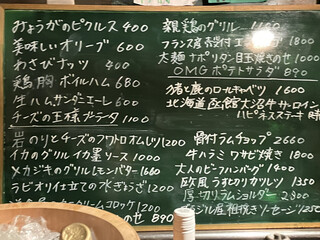 みょうがのピクルス 400
美味しいオリーブ 600
わさびナッツ 400
鶏胸ボイルハム 680
生ハムサンダニエーレ 600
チーズの王様ブラータ 1100
岩のりとチーズのフワトロオムレツ 1200
イカのグリル イカ墨ソース 1000
メカジキのグリルレモンバター 1660
ラビオリ仕立ての水ぎょうざ 1200
クリームコロッケ 1200
のせ 890
親鶏のグリル 1160
フランス産 1800
太麺ナポリタン目玉焼きのせ 1000
OMGポテトサラダ 890
猪と鹿のロールキャベツ 1600
北海道函館大沼牛サーロイン
ハピネスステーキ 時
骨付ラムチョップ 2660
牛ハラミワサビ焼き 1800
大人のビーフハンバーグ 1400
欧風うすむカツレツ 1350
厚切りラムショルダー 2800
ブラジル産粗挽きソーセージ 1250